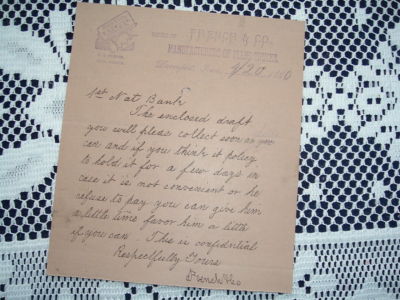 FRENCH & CO.
MANUFACTURERS OF
1st Nat Bank
The enclosed draft
you will please collect soon as you
can and if you think it policy
to hold it for a few days in
case it is not convenient or he
refuse to pay you can give him
a little time favor him a little
if you can. This is confidential
Respectfully Yours
French & Co